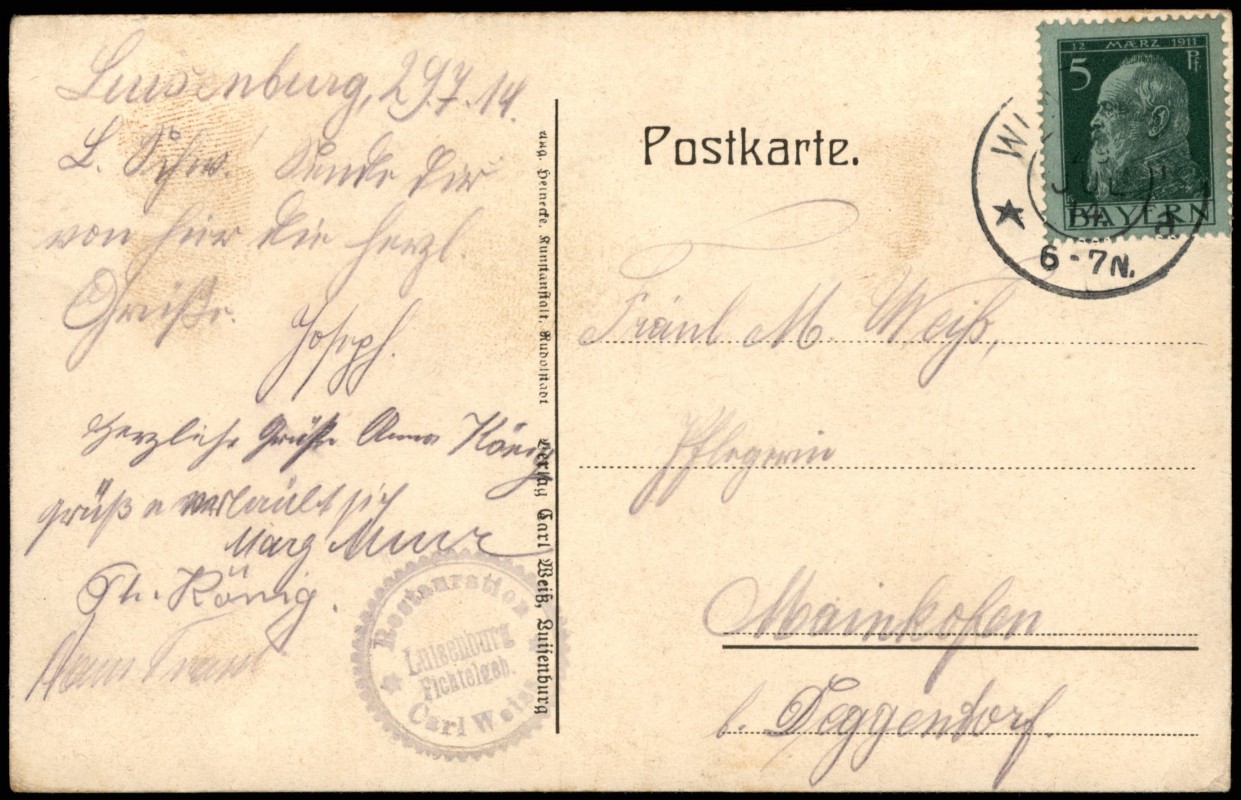 Luisenburg, 29.7.14.
L. Schw! Sende Dir
von hier die herzl.
Grüße.
Joseph.
Herzliche Grüße Anna König
grüße erlaubt sich
Marg
Th. König.
Restauration
Luisenburg
Fichtelgeb.
Carl Weiss
Aug. Heinecke, Kunstanstalt, Rudolstadt
Verlag Carl Weiß, Luisenburg
Postkarte.
12 MÆRZ 1911
5 Pf
BAYERN
JUL
14
6-7N.
Fräul M. Weiß,
Pflegerin
Mainkofen
b. Deggendorf.